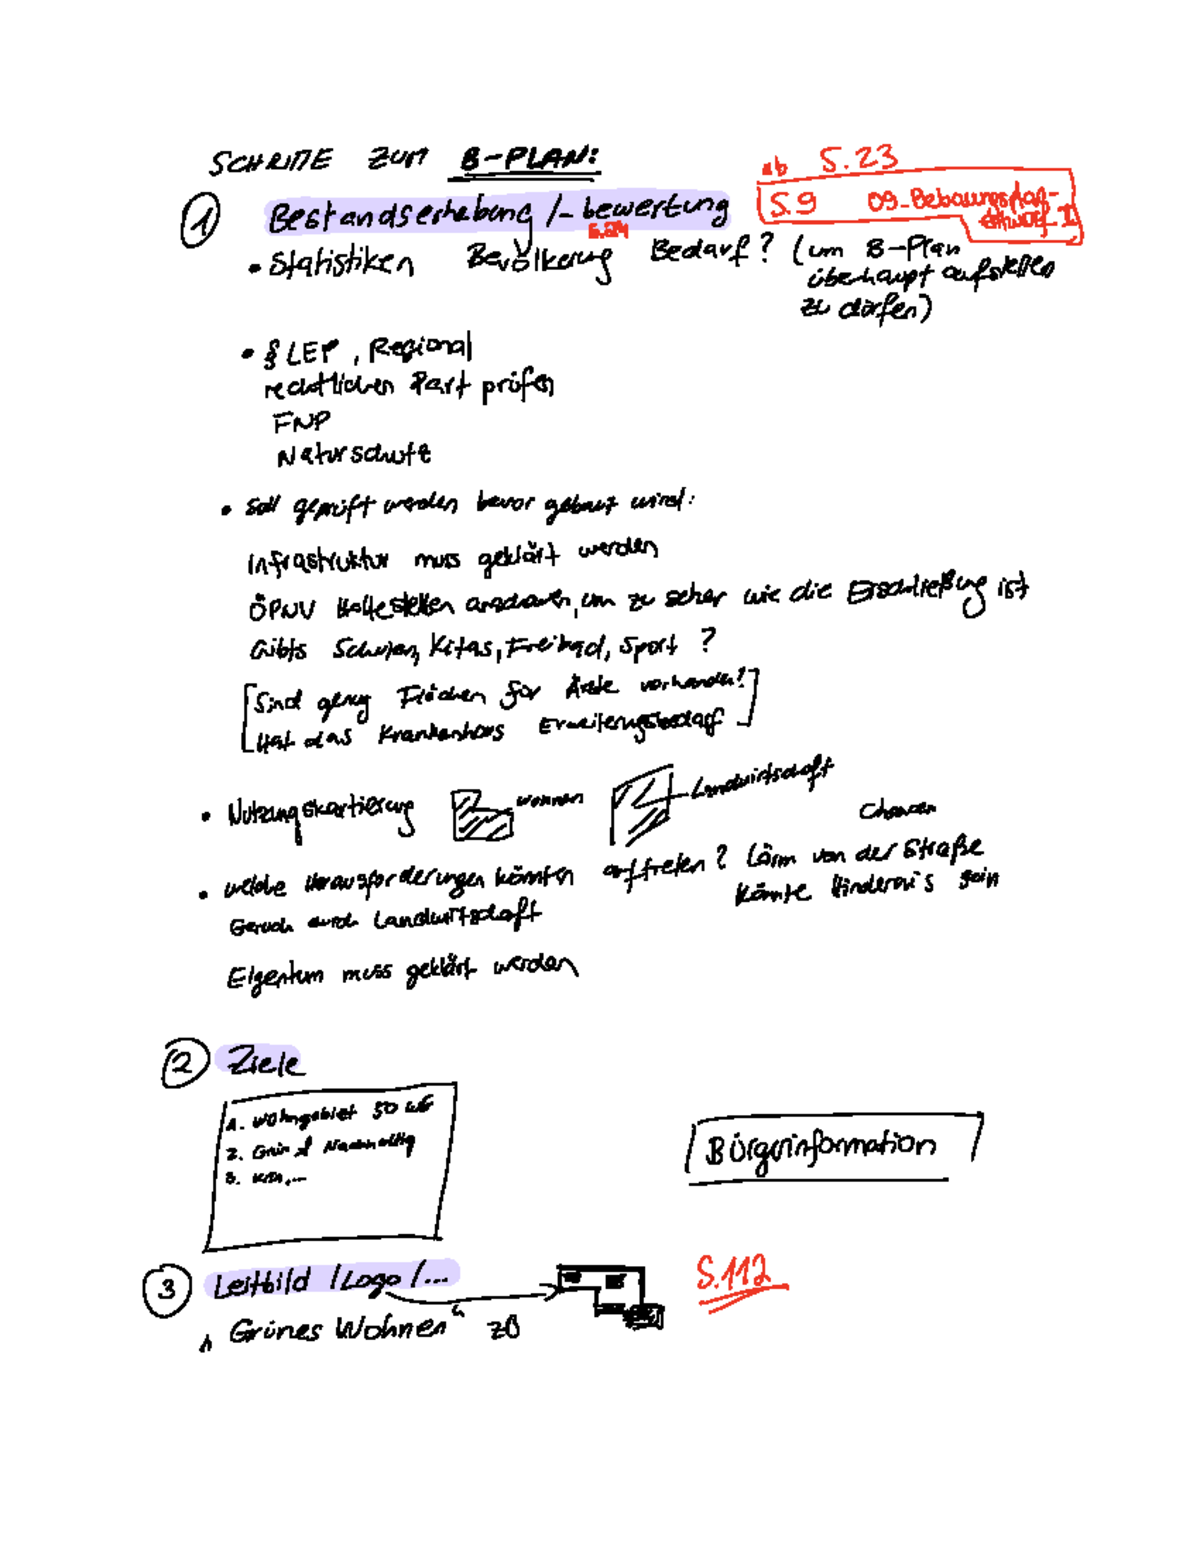 SCHRITTE ZUM B-PLAN:
ab S.23
① Bestandserhebung /-bewertung
S.9 09_Bebauungsplan-
Entwurf_II
S.24
• Statistiken Bevölkerung Bedarf? (um B-Plan
überhaupt aufstellen
zu dürfen)
• § LEP, Regional
rechtlichen Part prüfen
FNP
Naturschutz
• Soll geprüft werden bevor gebaut wird:
Infrastruktur muss geklärt werden
ÖPNV Haltestellen anschauen, um zu sehen wie die Erschließung ist
Gibts Schulen, Kitas, Freibad, Sport?
[Sind genug Flächen für Ärzte vorhanden?
Hat das Krankenhaus Erweiterungsbedarf]
• Nutzungskartierung wohnen Landwirtschaft
Chancen
• welche Herausforderungen könnten auftreten? Lärm von der Straße
könnte Hindernis sein
Geruch durch Landwirtschaft
Eigentum muss geklärt werden
② Ziele
1. Wohngebiet 50 WE
2. Grün & Nachhaltig
3.
Bürgerinformation
③ Leitbild /Logo /...
S.112
"Grünes Wohnen" zB